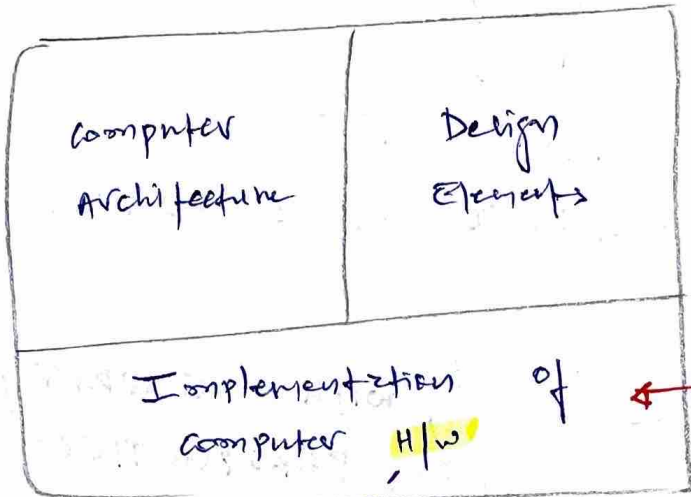 Computer
Architecture
Design
Elements
Implementation of
Computer H/W